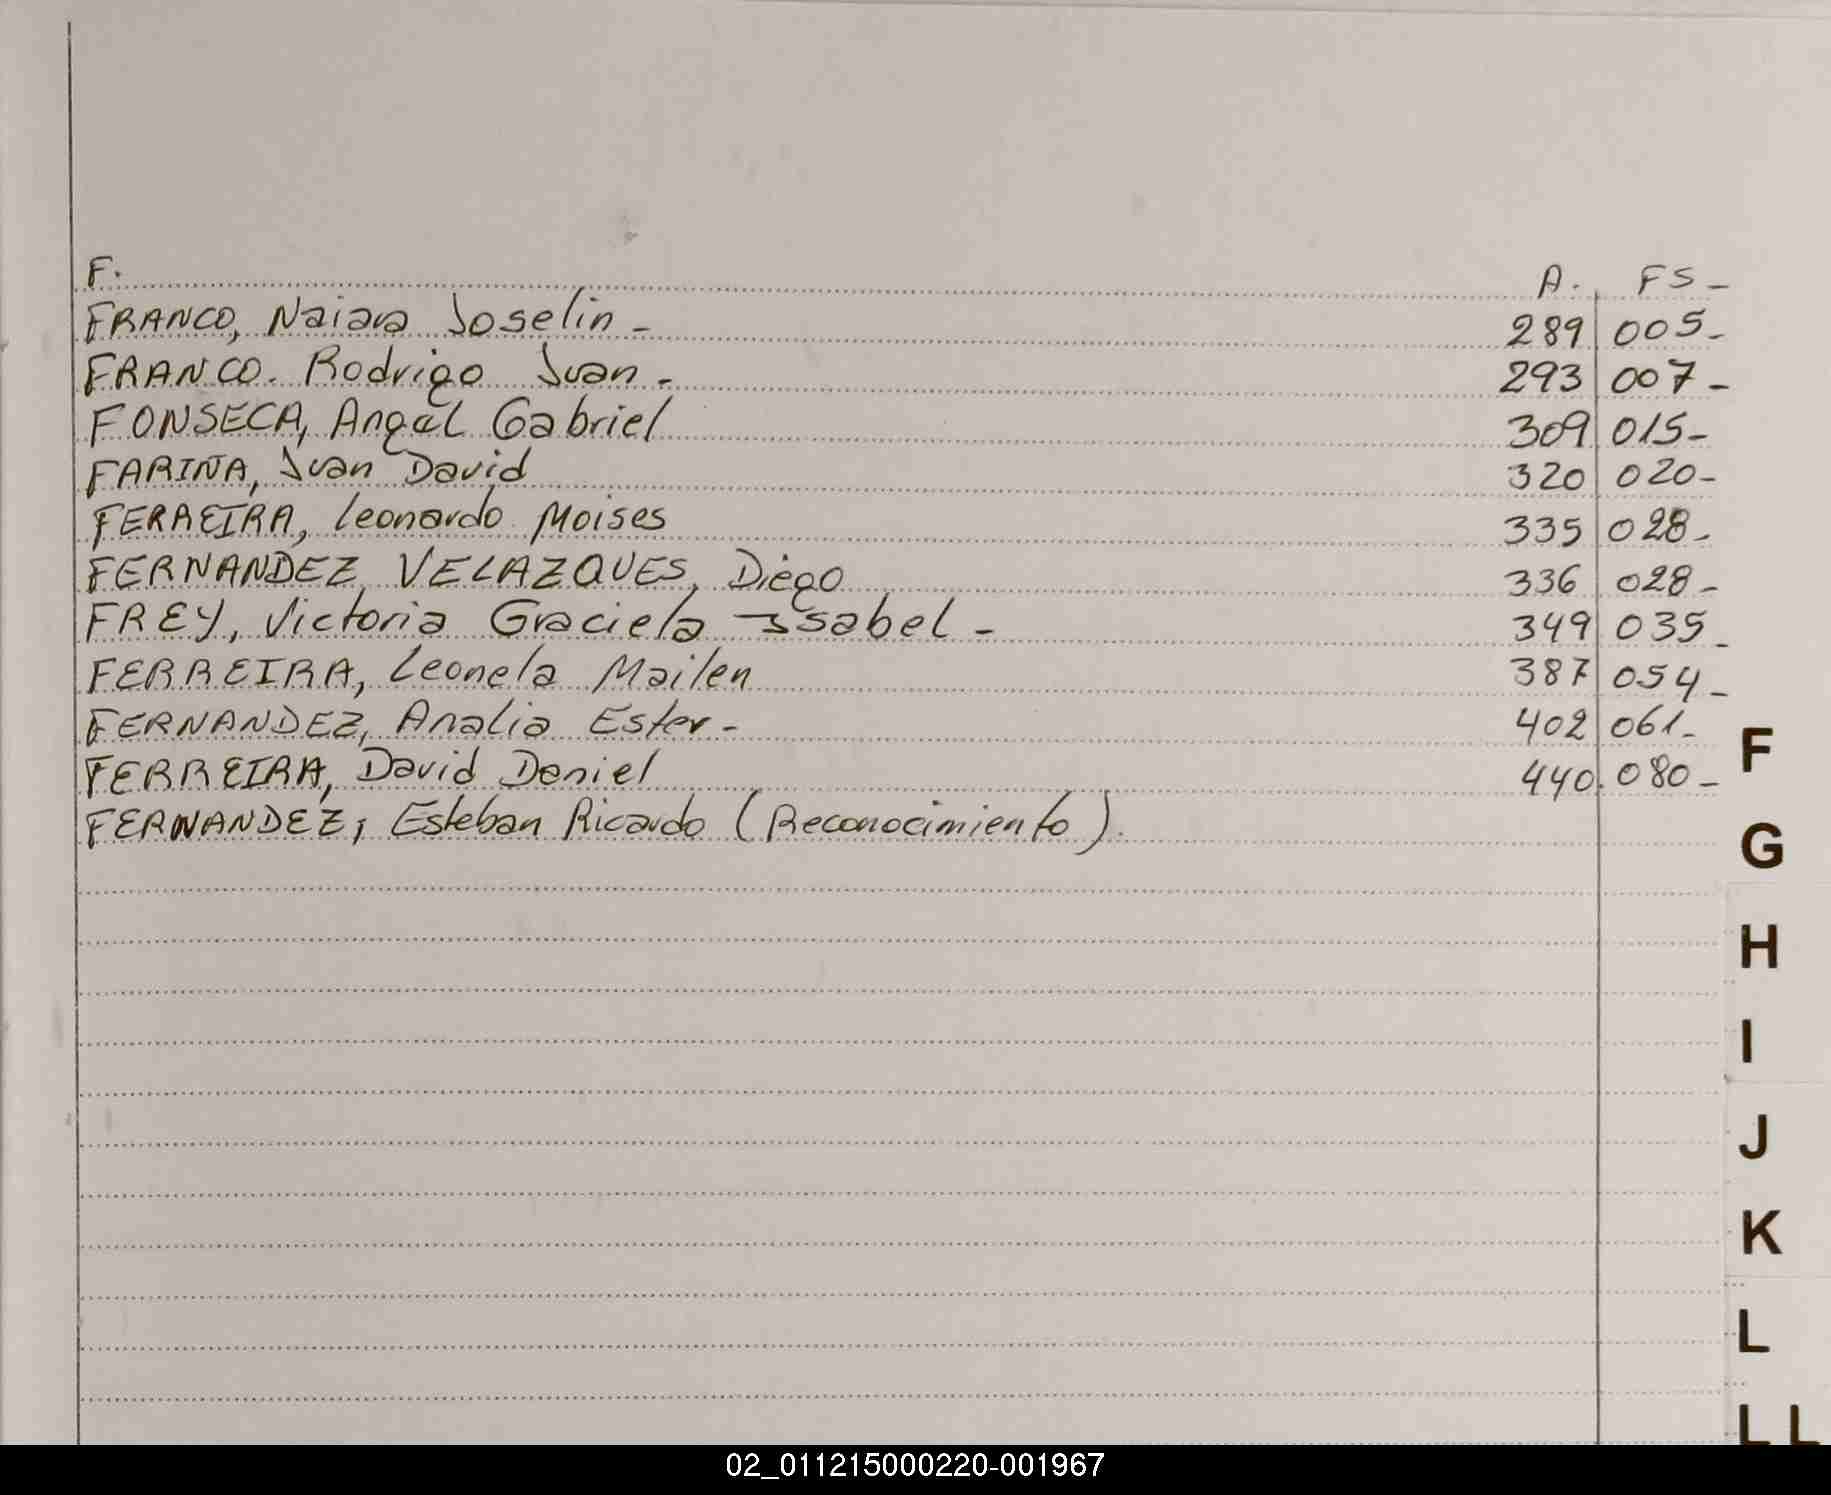 F. A. FS -
FRANCO, Naiara Joselin - 289 005 -
FRANCO. Rodrigo Juan - 293 007 -
FONSECA, Angel Gabriel 309 015 -
FARIÑA, Juan David 320 020 -
FERREIRA, Leonardo Moises 335 028 -
FERNANDEZ VELAZQUES, Diego 336 028 -
FREY, Victoria Graciela Isabel - 349 035 -
FERREIRA, Leonela Mailen 387 054 -
FERNANDEZ, Analia Ester - 402 061 -
FERREIRA, David Daniel 440 080 -
FERNANDEZ, Esteban Ricardo (Reconocimiento).
F
G
H
I
J
K
L
LL
02_011215000220-001967